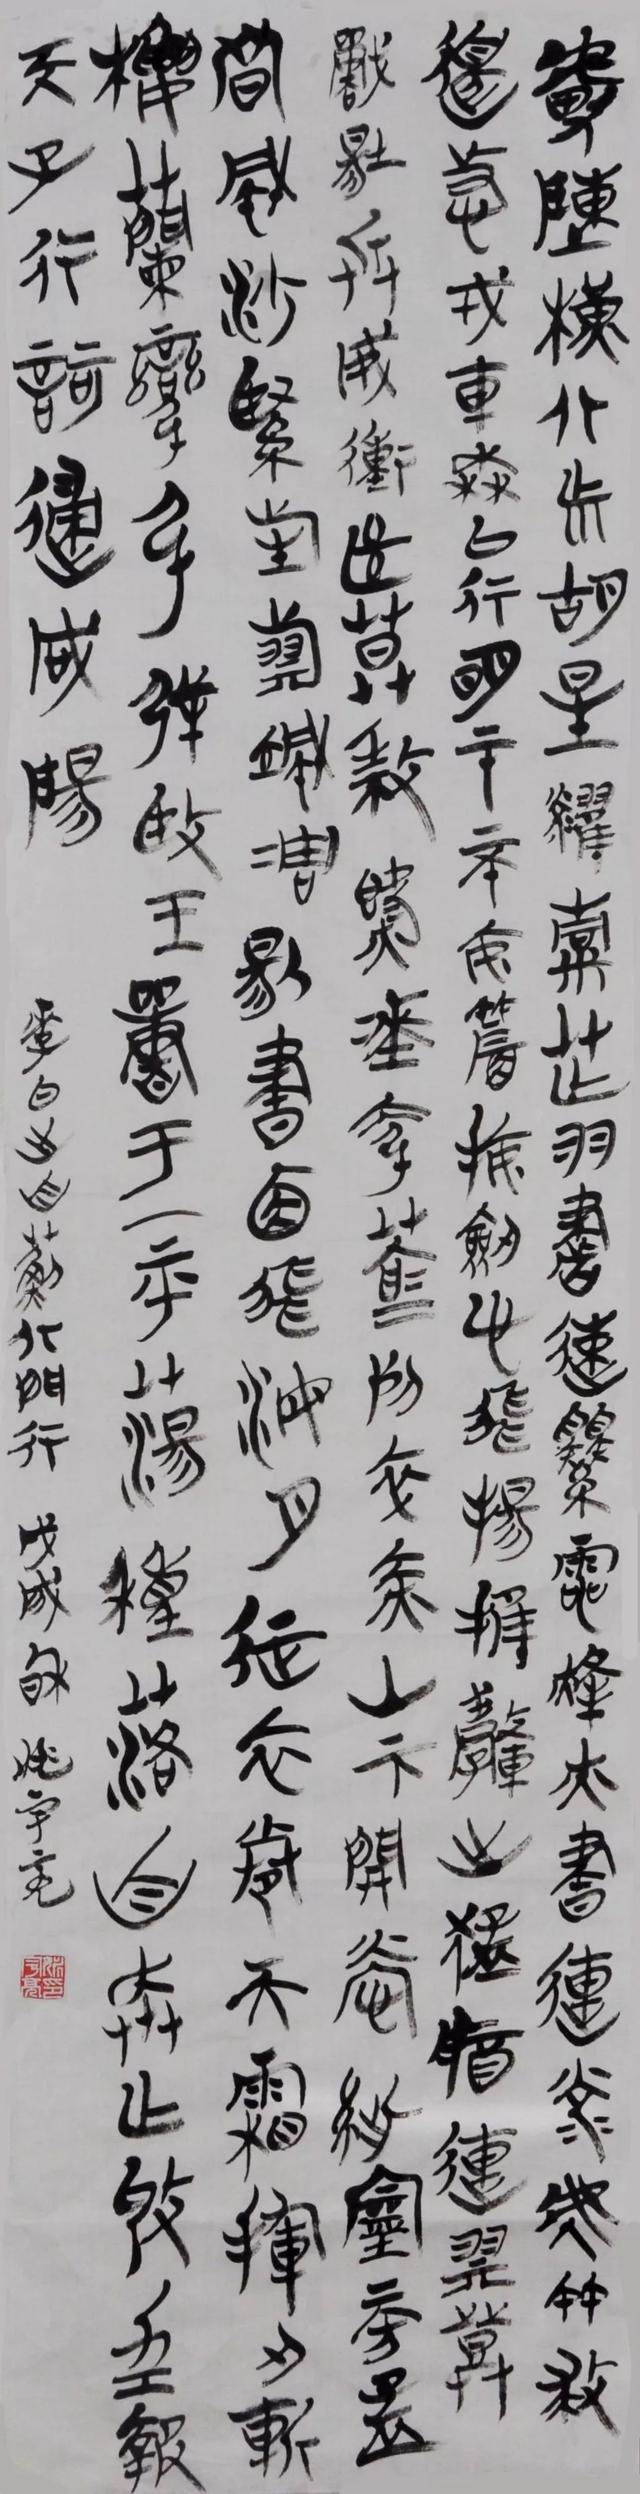 虜陣橫北荒胡星耀精芒羽書速驚電烽火晝連光虎竹救
邊急戎車森已行明主不安席按劍心飛揚推轂出猛將連旗登
戰場兵威衝絕幕殺氣凌穹蒼列卒赤山下開營紫塞傍孟
冬風沙緊旌旗颯凋傷畫角悲海月征衣卷天霜揮刃斬
樓蘭彎弓射賢王單于一平蕩種落自奔亡收功報
天子行歌歸咸陽
李白出自薊北門行 戊戌秋 姚宇亮